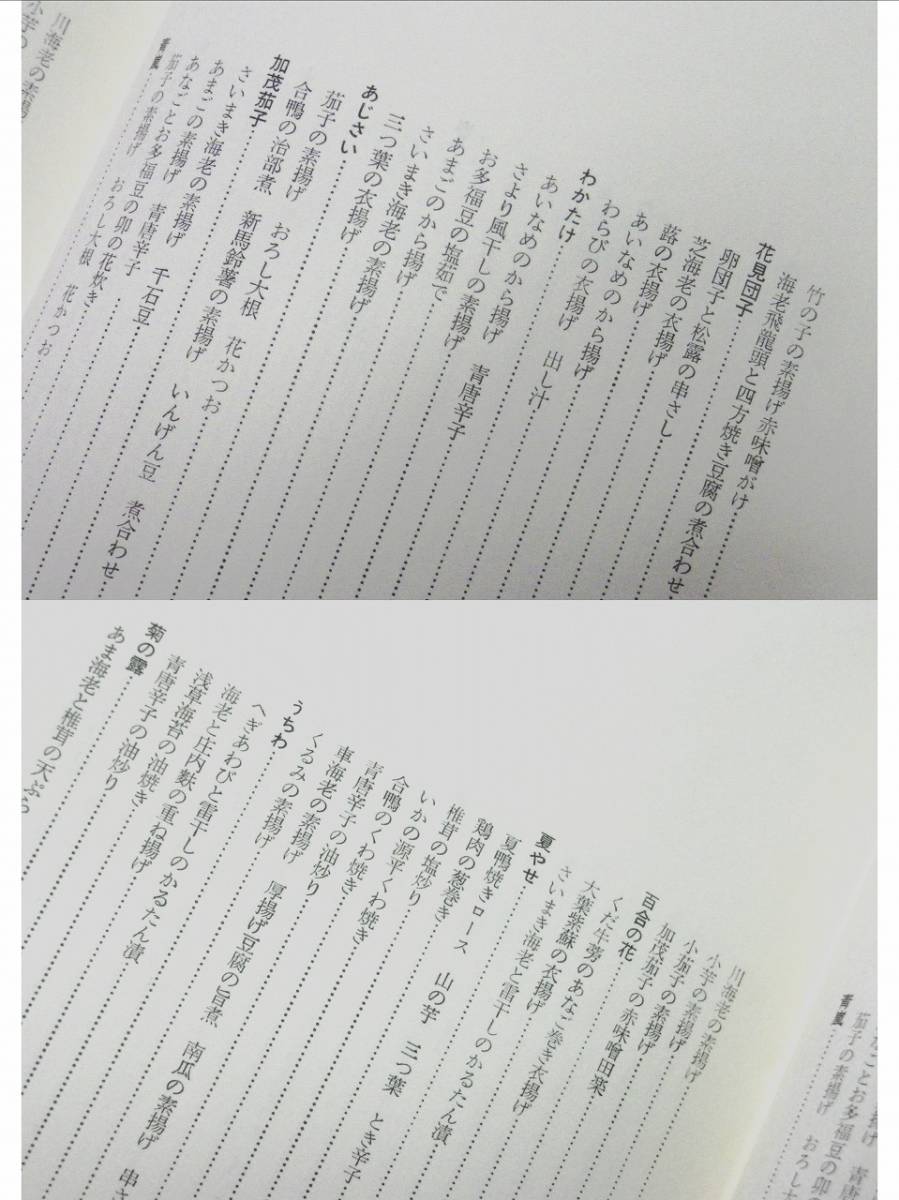 竹の子の素揚げ赤味噌がけ
海老飛龍頭と四方焼き豆腐の煮合わせ
花見団子
卵団子と松露の串さし
芝海老の衣揚げ
蕗の衣揚げ
あいなめのから揚げ
わらびの衣揚げ 出し汁
わかたけ
あいなめのから揚げ
さより風干しの素揚げ 青唐辛子
お多福豆の塩茹で
あまごのから揚げ
さいまき海老の素揚げ
三つ葉の衣揚げ
あじさい
茄子の素揚げ おろし大根 花かつお
合鴨の治部煮 新馬鈴薯の素揚げ いんげん豆 煮合わせ
加茂茄子
さいまき海老の素揚げ 千石豆
あまごの素揚げ 青唐辛子
あなごとお多福豆の卯の花炊き
茄子の素揚げ おろし大根 花かつお
青嵐
川海老の素揚
小芋の
川海老の素揚げ
小芋の素揚げ
小茄子の素揚げ
加茂茄子の赤味噌田楽
百合の花
くだ牛蒡のあなご巻き衣揚げ
大葉紫蘇の衣揚げ
さいまき海老と雷干しのかるたん漬
夏やせ
夏鴨焼きロース 山の芋 三つ葉 とき辛子
鶏肉の葱巻き
椎茸の塩炒り
いかの源平くわ焼き
合鴨のくわ焼き
青唐辛子の油炒り
車海老の素揚げ 厚揚げ豆腐の旨煮 南瓜の素揚げ 串さ
くるみの素揚げ
うちわ
へぎあわびと雷干しのかるたん漬
海老と庄内麩の重ね揚げ
浅草海苔の油焼き
青唐辛子の油炒り
菊の露
あま海老と椎茸の天ぷら
なごとお多福豆の卯
茄子の素揚げ おろし
青嵐